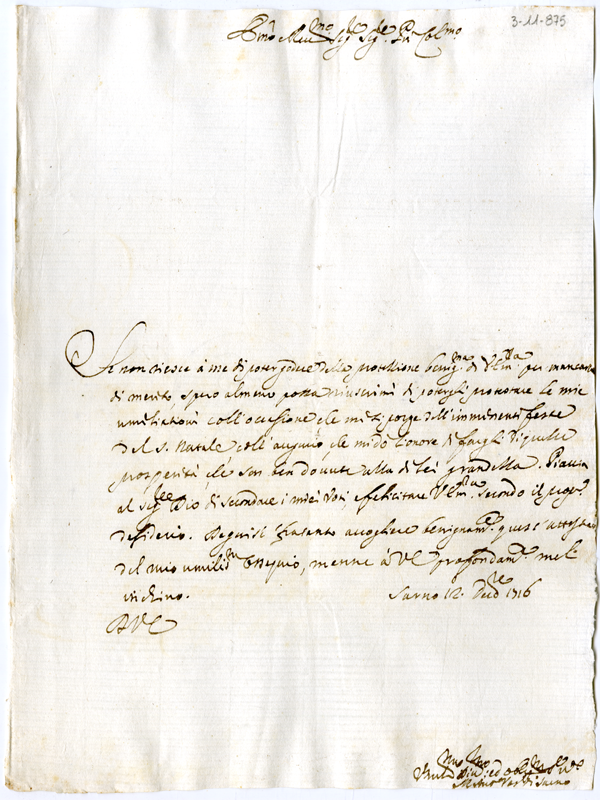 3-11-875
Emo Mio Sig.re Sig.re Pne Colmo
Se non riesce à me di poter godere della protettione benig.ma di V. Em.za per mancanza
di merito, spero almeno possa riuscirmi di poterle protestare le mie
umiliationi coll'occasione che mi si porge dell'imminenti feste
del S. Natale coll'augurio, che mi dò l'onore di fargli di quelle
prosperità, che son ben dovute alla di lei grandezza. Piaccia
al Sig.re Dio di secondare i miei voti, e felicitare V. Em.za secondo il prop.o
desiderio. Degnisi frà tanto accogliere benignam.te quest'attestato
del mio umiliss.mo ossequio, mentre à V.E. profondam.te me l'
inchino. Sarno 12. Decb.re 1716
D. V. E.
Umil.mo Div.mo ed Oblig.mo Ser.re
Vesc. di Sarno